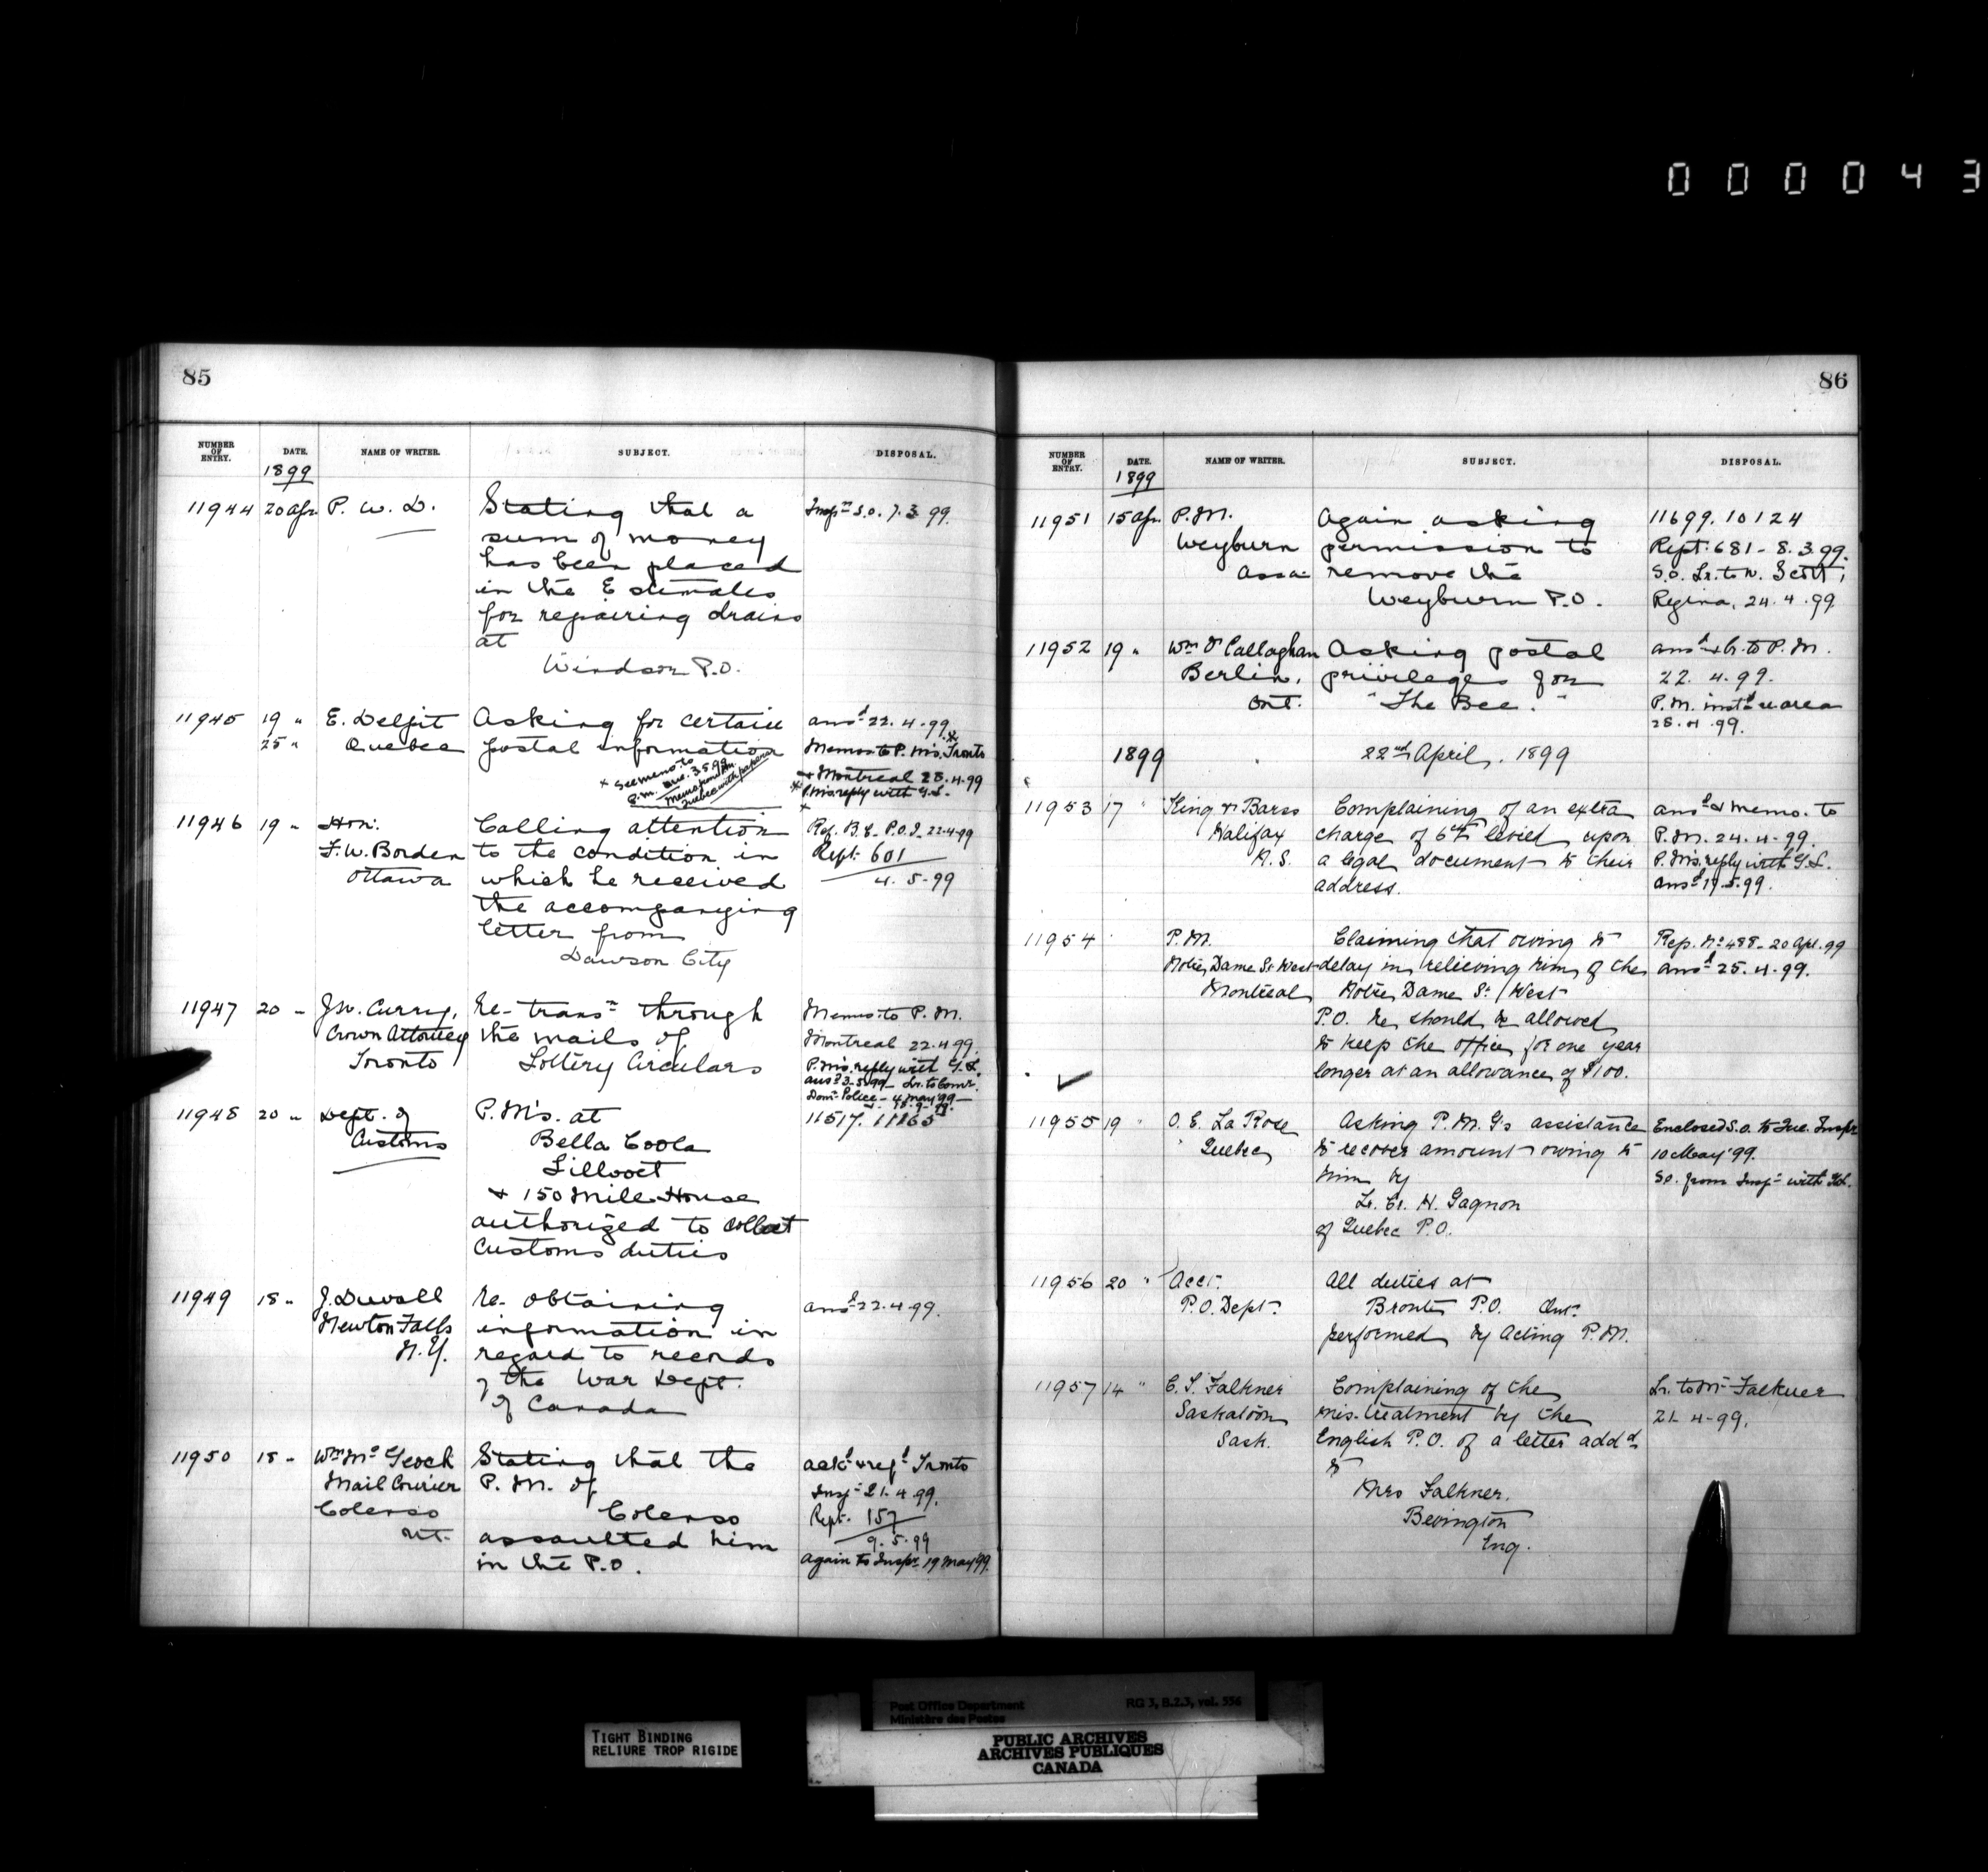 000043
85
NUMBER OF ENTRY. DATE. NAME OF WRITER. SUBJECT. DISPOSAL.
1899
11944 20 Apr. P. W. D. Stating that a Insp^n S.O. 7.3.99.
sum of money
has been placed
in the Estimates
for repairing drains
at
Windsor P.O.
11945 19 " E. Delpit Asking for certain ans^d 22.4.99.
25 " Quebec postal information Memos to P.M's. Tronto
+ Montreal 28.4.99
P.M's reply with G.L.
+ See memo. to
P.M. Que. 3.5.99
Memo from P.M.
Quebec with papers
11946 19 " Hon: Calling attention Ref. B.C. P.O.I. 22-4-99
F.W. Borden to the condition in Rept. 601
Ottawa which he received 4.5-99
the accompanying
letter from
Dawson City
11947 20 " J.W. Curry, Re- trans^n through Memo. to P.M.
Crown Attorney the mails of Montreal 22.4.99.
Toronto Lottery Circulars P.M's. reply with G.L.
ans^d 3.5.99 - Lr. to Comr.
Dom. Police - 4 May '99 -
11948 20 " Dept. of P.M's. at 11517. 11865
Customs Bella Coola
Lillooet
+ 150 Mile House
authorized to collect
Customs duties
11949 18 " J. Duvall Re- obtaining ans^d 22.4.99.
Newton Falls information in
N.Y. regard to records
of the War Dept.
of Canada
11950 18 " Wm. McGeoch Stating that the ack^d & ref^d Tronto
Mail Courier P.M. of Insp^r 21.4.99.
Colenso Colenso Rept. 157
Ont. assaulted him 9.5.99
in the P.O. again to Insp^r 19 May '99.
86
NUMBER OF ENTRY. DATE. NAME OF WRITER. SUBJECT. DISPOSAL.
1899
11951 15 Apr. P.M. Again asking 11699. 10124
Weyburn permission to Rept. 681 - 8.3.99.
Assa- remove the S.O. Lr. to W. Scott,
Weyburn P.O. Regina, 24.4.99
11952 19 " Wm O'Callaghan Asking postal ans^d & lr. to P.M.
Berlin, privileges for 22.4.99.
Ont. "The Bee." P.M. inst^d re area
28.4.99.
1899 22nd April, 1899
11953 17 " King & Barss Complaining of an extra ans^d & memo. to
Halifax charge of 6cts levied upon P.M. 24.4.99.
N.S. a legal document to their P.M's. reply with G.L.
address. ans^d 19.5.99.
11954 P.M. Claiming that owing to Rep. No 488 - 20 Apl. 99
Notre Dame St. West delay in relieving him of the ans^d 25.4.99.
Montreal Notre Dame St. West
P.O. he should be allowed
to keep the office for one year
longer at an allowance of $100.
11955 19 " O. E. La Rose Asking P.M.G's assistance Enclosed S.O. to Que. Insp^r
Quebec to recover amount owing to 10 May '99.
him by S.O. from Insp^r with G.L.
Lr. Cr. H. Gagnon
of Quebec P.O.
11956 20 " Acct. All duties at
P.O. Dept. Bronte P.O. Ont.
performed by Acting P.M.
11957 14 " C. S. Falkner Complaining of the Lr. to Mr Falkner
Saskatoon mis-treatment by the 21.4-99.
Sask. English P.O. of a letter add^d
to
Mrs Falkner,
Bevington
Eng.
TIGHT BINDING
RELIURE TROP RIGIDE
Post Office Department RG 3, B.2.3, vol. 556
Ministère des Postes
PUBLIC ARCHIVES
ARCHIVES PUBLIQUES
CANADA